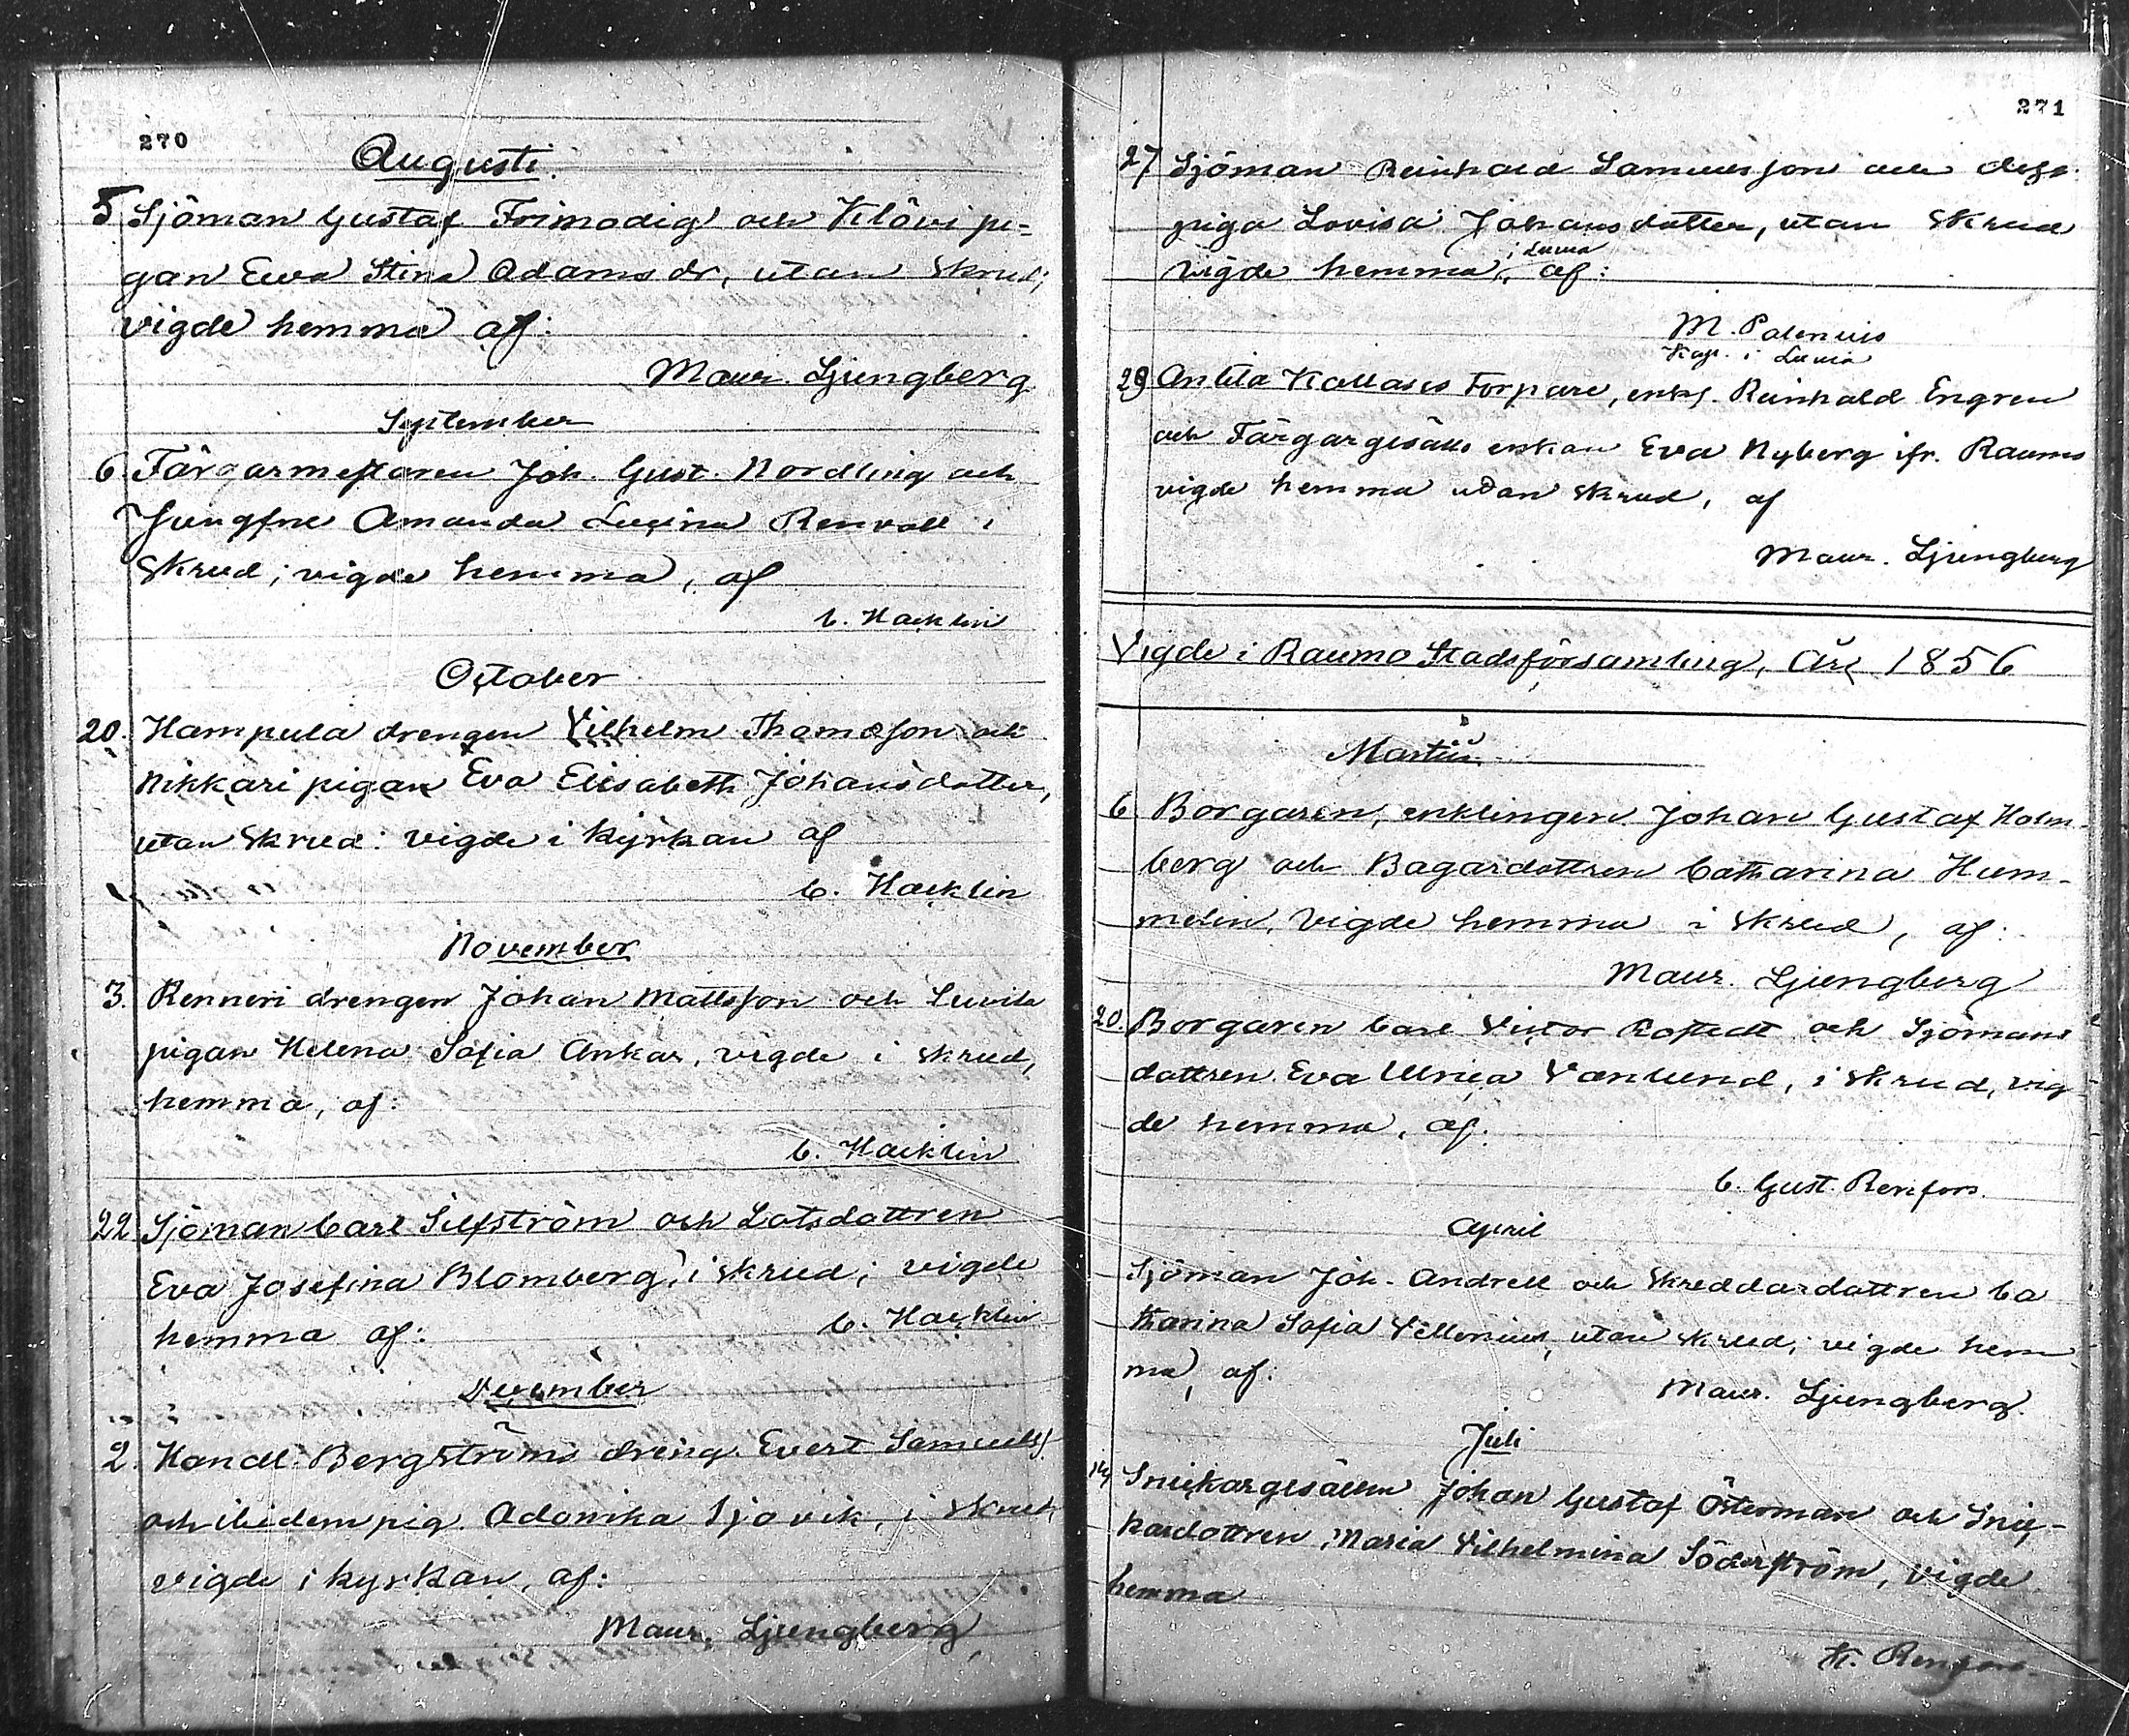 270
Augusti.
5 Sjöman Gustaf Frimodig och Klövi pi-
gan Eva Stina Adamsdr, utan skrud;
vigde hemma af:
Maur. Ljungberg
September
6. Färgarmestaren Joh. Gust. Nordling och
Jungfru Amanda Lucina Renvall i
skrud; vigde hemma, af
C. Hacklin
October
20. Hampula drengen Vilhelm Thomasson och
Nikkari pigan Eva Elisabeth Johansdotter,
utan skrud: vigde i kyrkan af
C. Hacklin
November
3. Renneri drengen Johan Mattsson och
pigan Helena Sofia Ankar, vigde i skrud,
hemma, af:
C. Hacklin
22 Sjöman Carl Silfström och Lotsdottren
Eva Josefina Blomberg, i skrud; vigde
hemma af: C. Hacklin
December
2. Handl. Bergströms dreng. Evert Samuels.
och ibidem pig. Adamika Sjövik, i skrud,
vigde i kyrkan, af:
Maur. Ljungberg
271
27 Sjöman Reinhold Samuelsson och
piga Lovisa Johansdotter, utan skrud
vigde hemma, i Luvia af:
M. Polenius
Kap. i Luvia
29 Anttila Kallasis Torpare, enkl. Reinhold Engren
och Färgargesälls enkan Eva Nyberg ifr. Raumo
vigde hemma utan skrud, af
Maur. Ljungberg
Vigde i Raumo Stadsförsamling, År 1856
Martii
6. Borgaren, enklingen Johan Gustaf Holm-
berg och Bagardottren Catharina Hum-
melin, vigde hemma i skrud, af:
Maur. Ljungberg
20. Borgaren Carl Victor Rostedt och Sjömans
dottren Eva Ulrica Vanlund, i skrud, vig-
de hemma, af:
C. Gust. Renfors.
April
Sjöman Joh. Andrell och Skreddardottren Ca
tharina Sofia Villenius, utan skrud; vigde hem
ma, af: Maur. Ljungberg.
Juli
14 Snickargesällen Johan Gustaf Österman och Snic-
kardottren Maria Vilhelmina Söderström, vigde
hemma
K. Renfors.